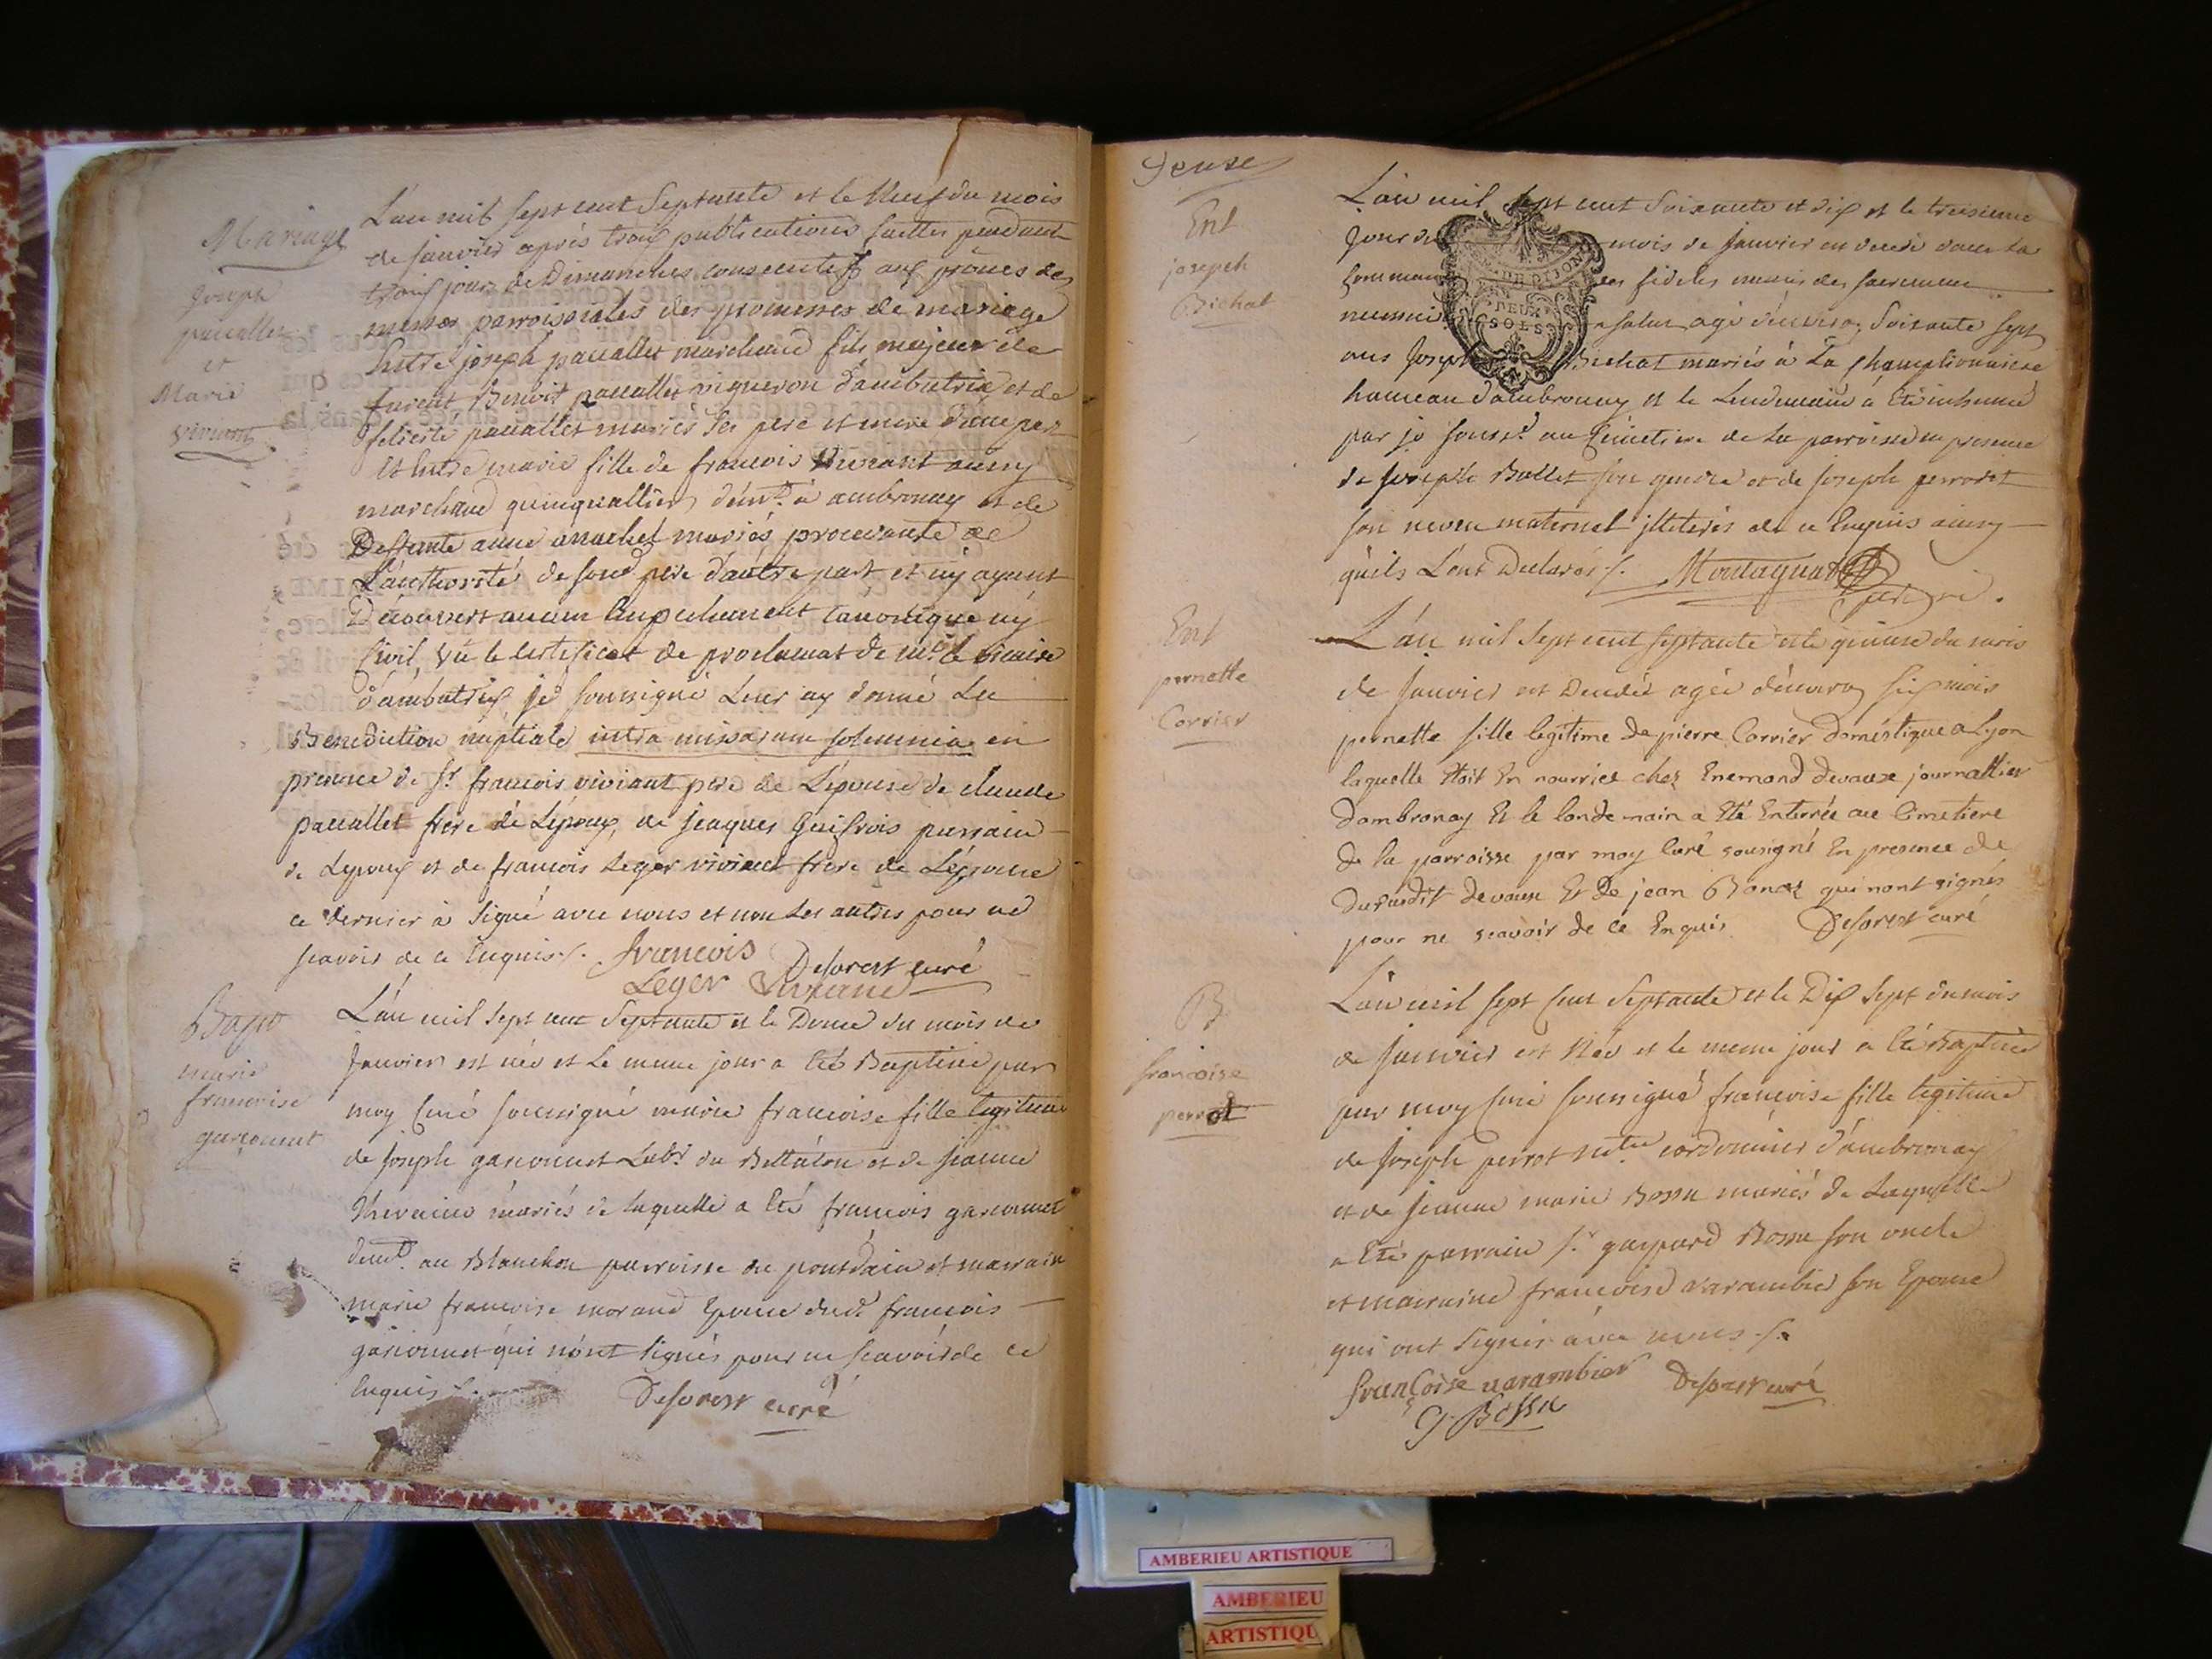 Mariage
Joseph
paccallet
et
Marie
viviant
L'an mil sept cent Septante et le Neuf du mois
de janvier après trois publications faittes pendant
trois jours de Dimanches consecutifs aux prônes des
messes parroissiales des promesses de mariage
Entre joseph paccallet marchand fils majeur de
Benoit paccallet vigneron d'ambutrix et de
felicité paccallet mariés ses pere et mere d'une part
Et Entre marie fille de francois viviant aussy
marchand quinquallier demt. à ambronay et de
Deffunte anne mariés procedante de
L'authorité de sond. pere d'autre part et n'y ayant
Découvert aucun Empechement canonique ny
Civil, vu le certificat de proclamat de mr. le vicaire
d'ambutrix je soussigné Leur ay donné La
Benediction nuptiale intra missarum solemnia en
presence de Sr. francois viviant pere de L'epouse de claude
paccallet frere de L'epoux, de jacques parrain
de Lepoux et de francois Leger viviant frere de L'épouse
ce dernier à signé avec nous et non Les autres pour ne
scavoir de ce Enquis ./. francois
Leger viviand Deforest curé
Bapt
marie
francoise
garconnet
L'an mil sept cent Septante et le Douze du mois de
Janvier est née et Le meme jour a été Baptisée par
moy Curé soussigné marie francoise fille Legitime
de Joseph garconnet Labr. du Bettalon et de jeanne
Thevenin mariés de laquelle a Eté francois garconnet
demt. au Blanchon parroisse du pontdain et marraine
marie francoise morand Epouse dud. francois
garconnet qui n'ont signés pour ne scavoir de ce
Enquis ./.
Deforest curé
Ent
joseph
Bichat
L'an mil sept cent Soixante et dix et le treisieme
Jour du mois de Janvier est decedé dans La
Commun des fideles munis des sacremens
agé d'environ Soixante sept
ans Joseph Bichat mariés à La
hameau d'ambronay et le Lendemain à été inhumé
par je souss.d au Cimetiere de La parroisse en presence
de Joseph Ballet son gendre et de Joseph perrodet
son neveu maternel illiterés de ce Enquis ainsy
qu'ils L'ont Declarés ./. Montagnat
DE DIJON
DEUX
SOLS
Ent
pernette
Corrier
L'an mil Sept cent septante et le quinze du mois
de Janvier est Decedée agée d'environ six mois
pernette fille legitime de pierre Corrier doméstique a Lyon
laquelle êtoit En nourrice chez Enemond devaux journallier
dambronay Et le lendemain a Eté Enterrée au Cimetiere
de la parroisse par moy Curé sousigné En presence de
dususdit devaux Et De jean qui nont signés
pour ne scavoir de ce Enquis Deforest curé
B
francoise
perrot
L'an mil sept Cent Septante et le Dix Sept du mois
de Janvier est Née et le meme jour a Eté Baptisée
par moy Curé soussigné francoise fille legitime
de Joseph perrot cordonnier d'ambronay
et de jeanne marie Bossu mariés de Laquelle
a Eté parrain Sr. gaspard Bossu son oncle
et marraine francoise varambier son Epouse
qui ont signés avec nous ./.
françoise varambier Deforest curé
G. Bossu
AMBERIEU ARTISTIQUE
AMBERIEU
ARTISTIQU